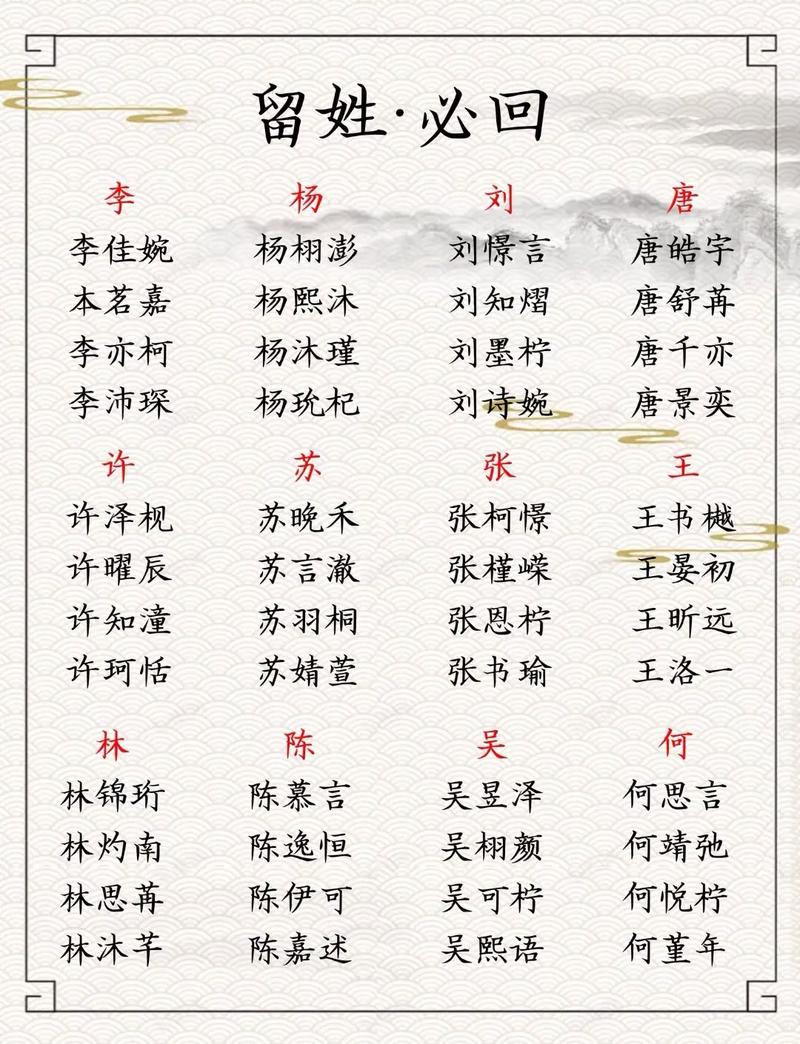 留姓·必回
李 杨 刘 唐
李佳婉 杨栩澎 刘憬言 唐皓宇
本茗嘉 杨熙沐 刘知熠 唐舒苒
李亦柯 杨沐瑾 刘墨柠 唐千亦
李沛琛 杨玧杞 刘诗婉 唐景奕
许 苏 张 王
许泽枧 苏晚禾 张柯憬 王书樾
许曜辰 苏言澈 张槿嵘 王晏初
许知潼 苏羽桐 张恩柠 王昕远
许珂恬 苏婧萱 张书瑜 王洛一
林 陈 吴 何
林锦珩 陈慕言 吴昱泽 何思言
林灼南 陈逸恒 吴栩颜 何靖弛
林思苒 陈伊可 吴可柠 何悦柠
林沐芊 陈嘉述 吴熙语 何堇年